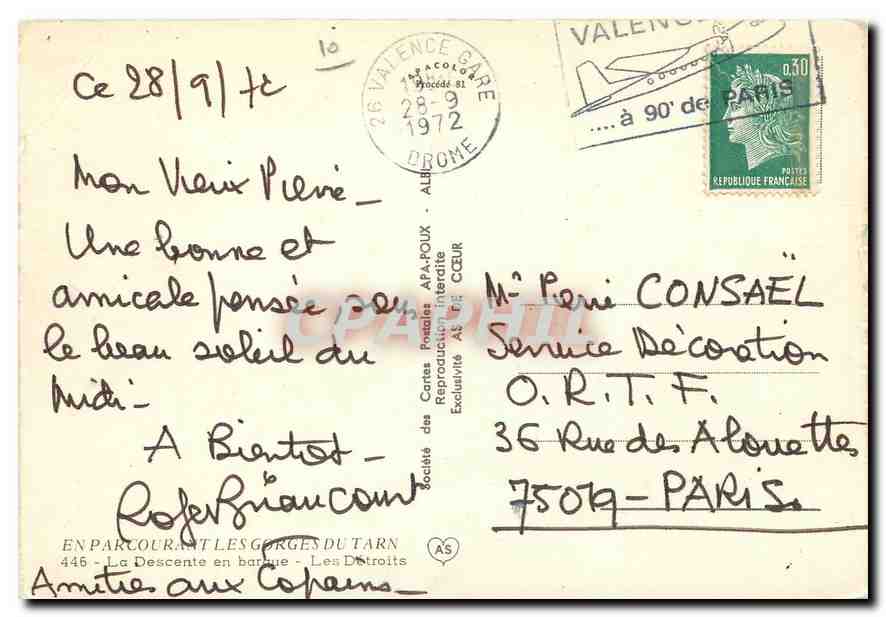 Ce 28/9/72
10
26 VALENCE GARE
28-9
1972
DROME
APACOLOR
Procédé 81
VALENCE
....à 90' de PARIS
0,30
POSTES
REPUBLIQUE FRANÇAISE
Mon Vieux Pierre_
Une bonne et
amicale pensée, sous
le beau soleil du
Midi_
A Bientot_
Roger Briaucourt
Amitiés aux Copains_
EN PARCOURANT LES GORGES DU TARN
446 - La Descente en barque - Les Détroits
AS
Société des Cartes Postales APA-POUX - ALBI
Reproduction interdite
Exclusivité AS DE CŒUR
Mr Pierre CONSAËL
Service Décoration
O.R.T.F.
36 Rue des Alouettes
75019-PARIS.
CPAPHIL